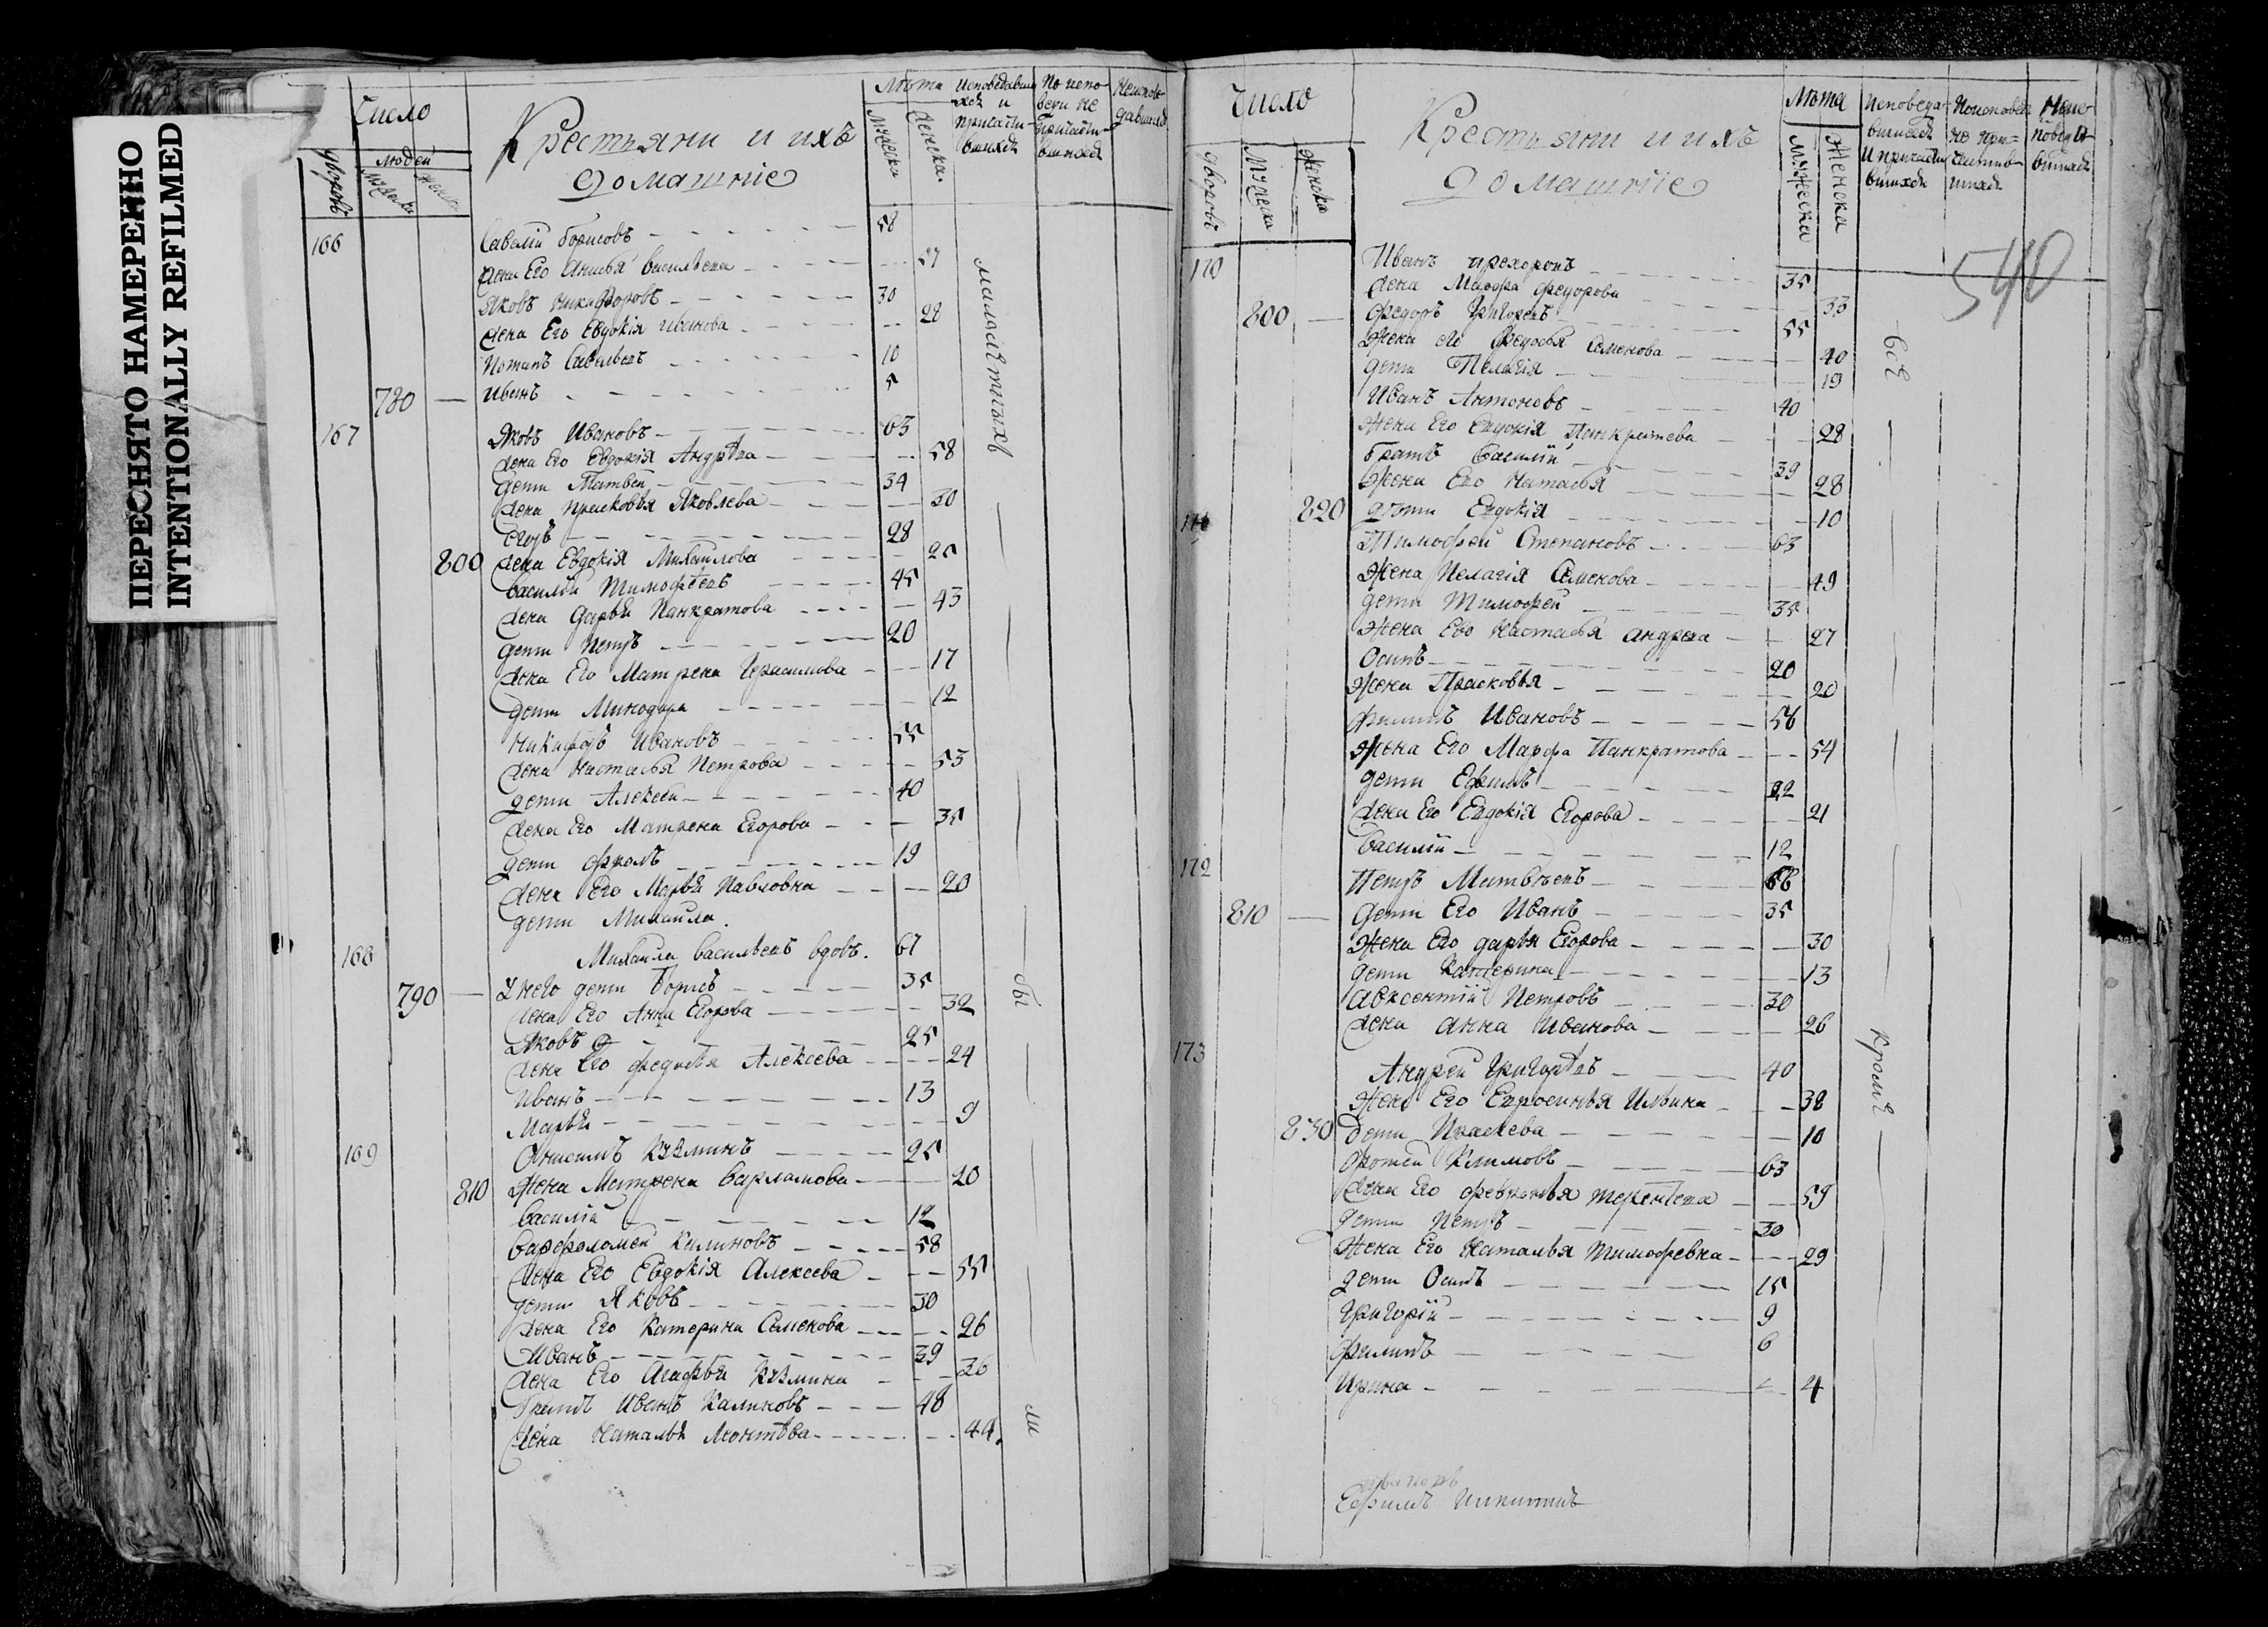 ПЕРЕСНЯТО НАМЕРЕННО
INTENTIONALLY REFILMED
Число
людей
дворовъ
мужеска
женска
Крестьяни и ихъ
домашніе
Лѣта
мужеска
женска.
исповедавши
хся и
причасти-
вшихся
По испо-
веди не
причасти-
вшихся
Неиспове
давшихся
166 Савелій борисовъ 58
жена Его Анисья василѣева 57
Яковъ никифоровъ 30
жена Его Евдокія иванова 28
Потапъ Савельевъ 10
780 иванъ 5
167 Яковъ Ивановъ 63
жена Его Евдокія Андрѣева 58
дети Матвей 34
жена прасковья Яковлева 30
Егоръ 28
800 жена Евдокія Михаилова 25
василій Тимофѣевъ 45
жена дарья Панкратова 43
дети Петръ 20
жена Его Матрена Герасимова 17
дети Минодора 12
никифоръ Ивановъ 55
жена Настасья Петрова 53
дети Алексей 40
жена Его Матрена Егорова 35
дети фролъ 19
жена Его Марья Павловна 20
дети Михаила.
168 Михаила василѣевъ вдовъ. 67
790 У него дети Борисъ 35
жена Его Анна Егорова 32
Яковъ 25
жена Его федосья Алексеева 24
Иванъ 13
Марья 9
169 Анисимъ Кузминъ 25
810 Жена Матрена Варламова 20
Василій 12
Варфоломей Калиновъ 58
жена Его Евдокія Алексеева 55
дети Яковъ 30
жена Его Катерина Семенова 26
Иванъ 39
жена Его Агафья Кузмина 36
братъ Иванъ Калиновъ 48
жена Наталья Леонтѣва 44.
малолѣтныхъ
бы
ли
Число
дворовъ
мужеска
женска
Крестьяни и ихъ
домашніе
Лѣта
мужеска
Женска
исповеда-
вшихся
и причасти
вшихся
Поисповед
не при-
частив-
шихся
Неис-
поведа-
вшихся
540
170 Иванъ прохоровъ 35
жена Марфа федорова 33
800 федоръ Григоревъ 55
Жена его Федосья Семенова 40
дети Пелагія 19
Иванъ Антоновъ 40
Жена Его Евдокія Панкратева 28
братъ Василій 39
Жена Его Наталья 28
820 дѣти Евдокія 10
171 Тимофей Степановъ 63
Жена Пелагія Семенова 49
дети Тимофей 35
Жена Его Настасья андреева 27
Осипъ 20
Жена Прасковья 20
филипъ Ивановъ 56
Жена Его Марфа Панкратова 54
дети Ефимъ 22
жена Его Евдокія Егорова 21
Василій 12
172 Петръ Матвѣевъ 66
810 Дети Его Иванъ 35
Жена Его дарья Егорова 30
дети Катерина 13
Авксентій Петровъ 30
жена анна Иванова 26
173 Андрей Григорѣвъ 40
Жена Его Евросинья Ильина 38
830 дети Праскева 10
Фотей Климовъ 63
жена Его февронья терентева 59
дети Петръ 30
Жена Его Наталья Тимофевна 29
дети Осипъ 15
Григорій 9
филипъ 6
Ирина 4
всѣ
кромѣ
Ефимъ Никитинъ